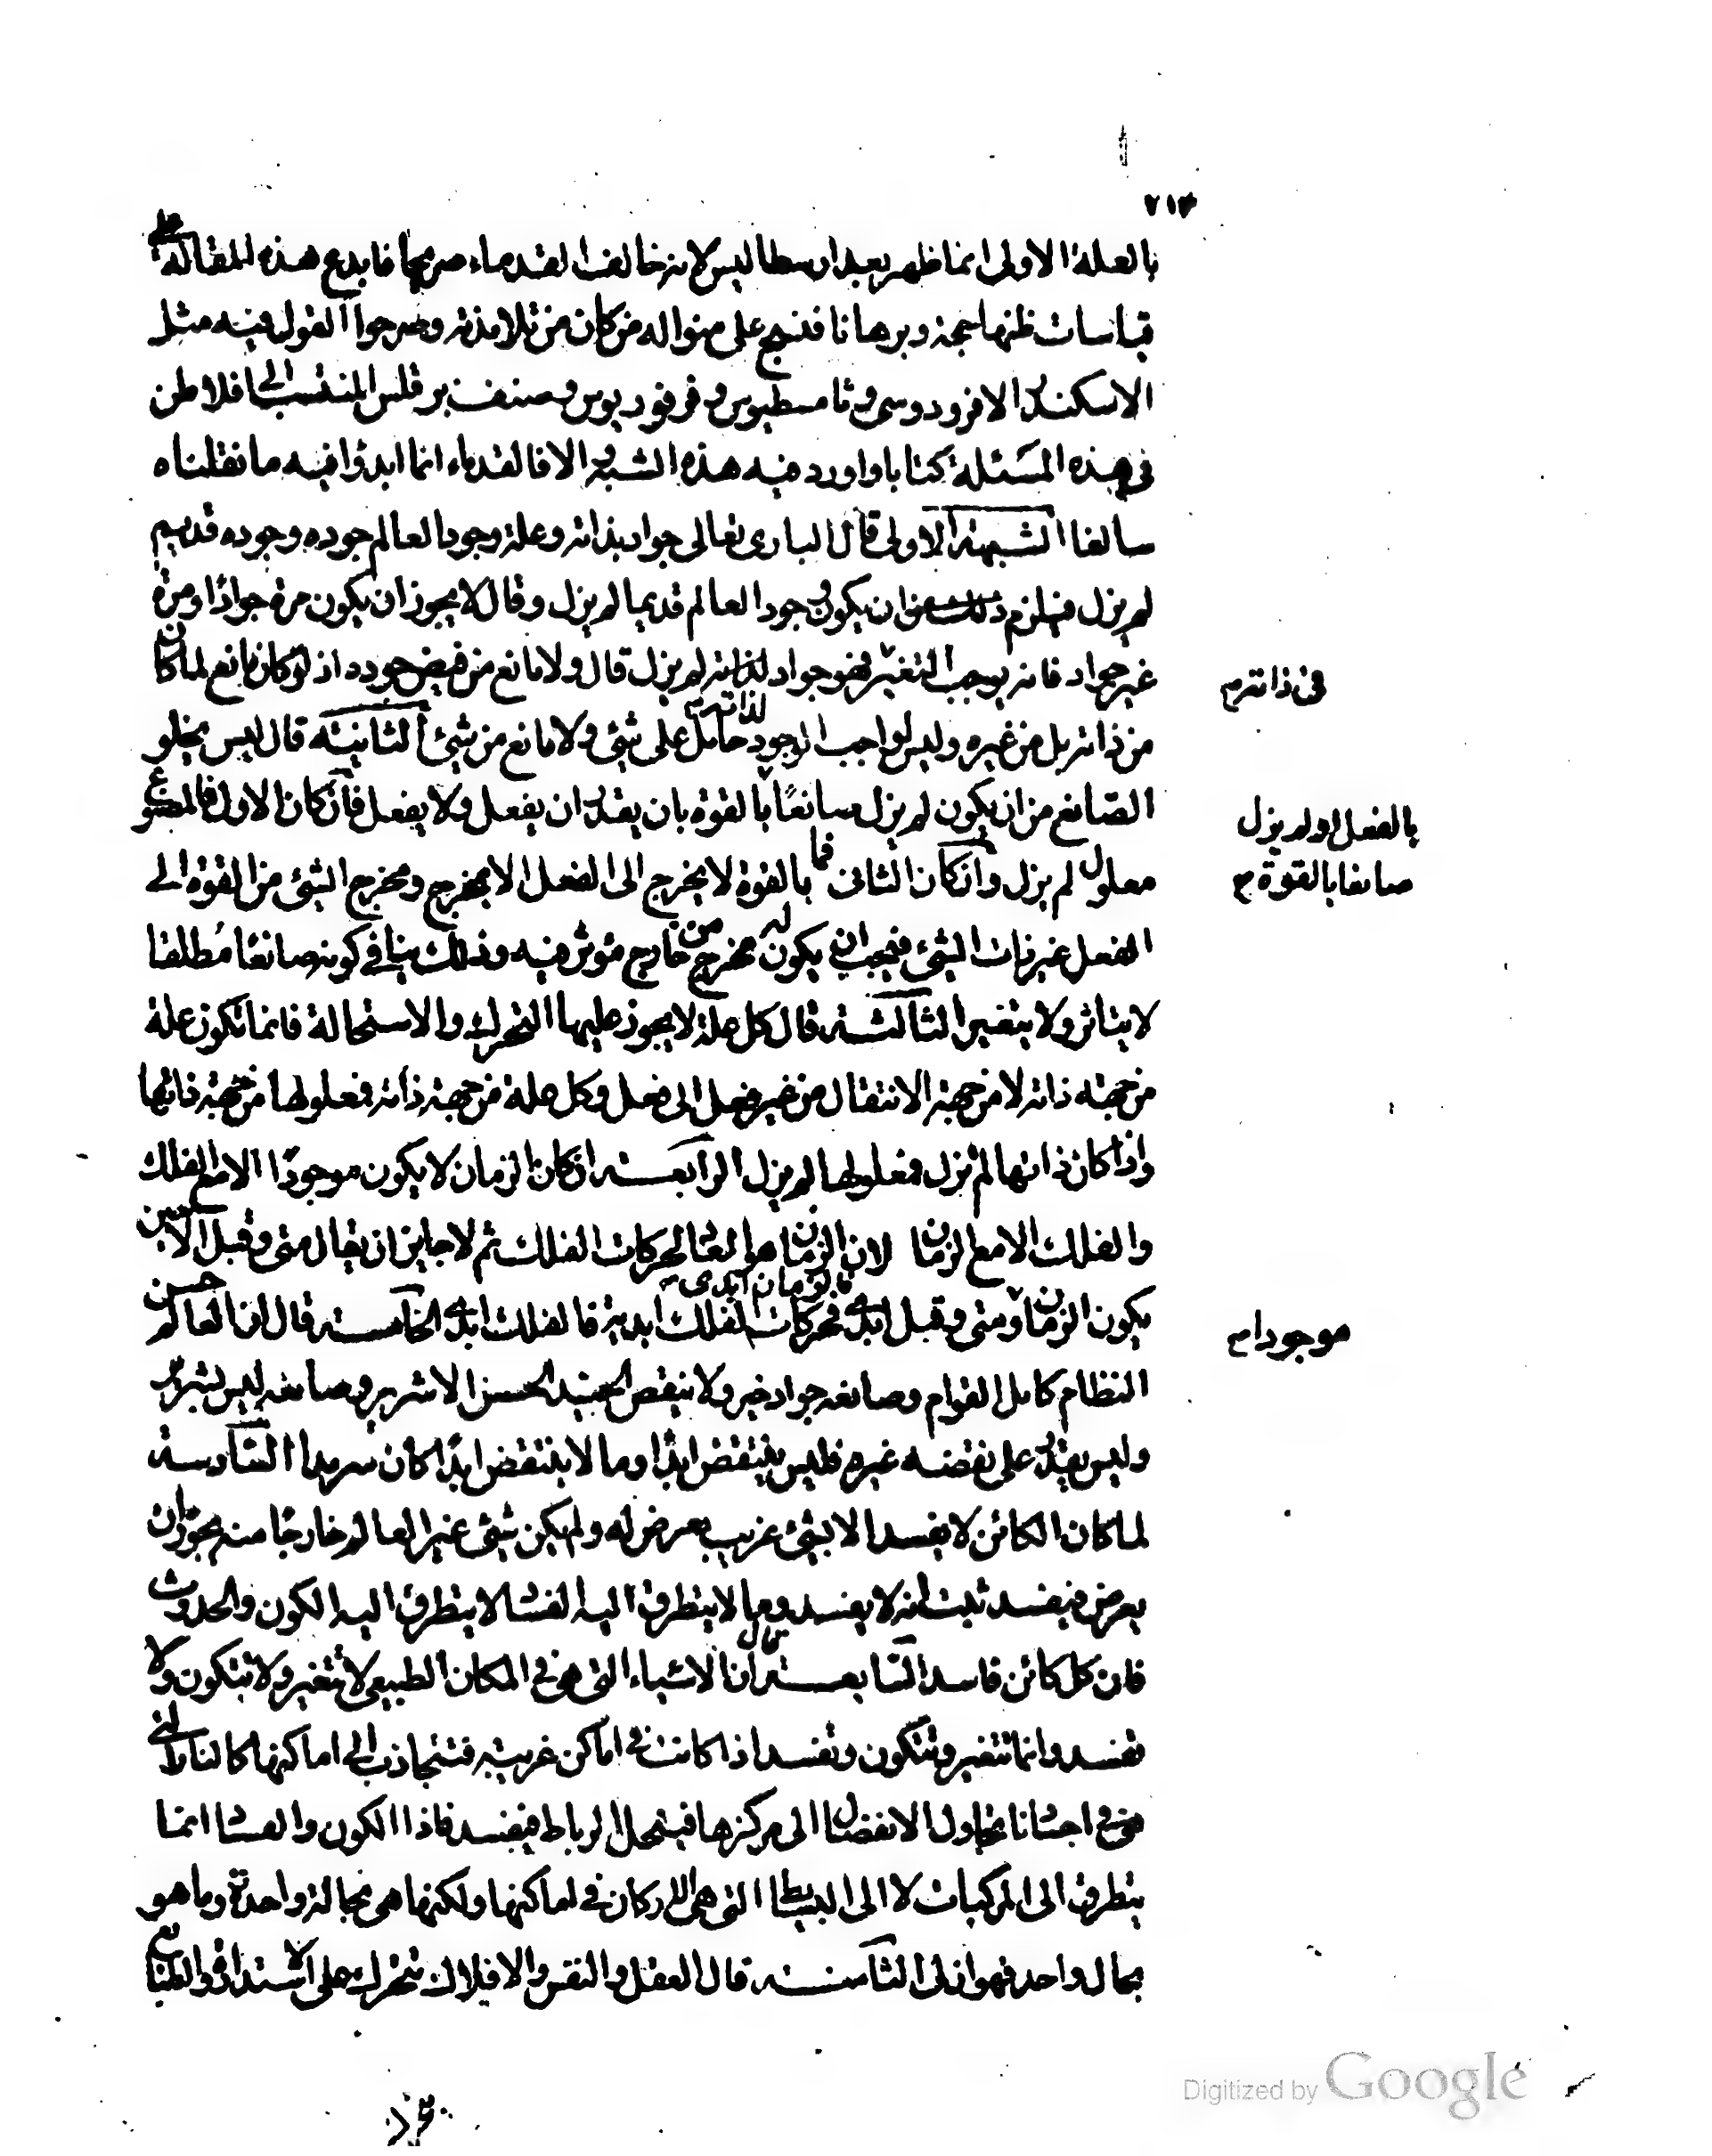 ٢١٣
بالعلة الاولى انما ظهر بعد ارسطاليس لانه خالف القدماء صريحا فابدع هذه المقالة على
قياسات ظنها حجة وبرهانا فنسج على منواله من كان من تلامذته وصرحوا القول فيه مثل
الاسكندر الافرودوسى وثامسطيوس وفرفوريوس وصنف برقلس المنتسب الى افلاطن
فى هذه المسئلة كتابا واورد فيه هذه الشبه والا فالقدماء انما ابدوا فيه ما نقلناه
سالفا الشبهة الاولى قال البارى تعالى جواد بذاته وعلة وجود العالم جوده وجوده قديم
لم يزل فيلزم ان يكون وجود العالم قديما لم يزل وقال لا يجوز ان يكون مرة جوادا ومرة
غير جواد فانه يوجب التغير فهو جواد لذاته لم يزل قال ولا مانع من فيض جوده اذ لو كان مانع لما كان
فى ذاته م
من ذاته بل من غيره وليس لواجب الوجود لذاته م حامل على شئ ولا مانع من شئ الثانية قال ليس يخلو
الصانع من ان يكون لم يزل صانعا بالقوة بان يقدر ان يفعل ولا يفعل فان كان الاول فالمصنوع
بالفعل او لم يزل
معلول لم يزل وان كان الثانى فما بالقوة لا يخرج الى الفعل الا بمخرج ومخرج الشئ من القوة الى
صانعا بالقوة م
الفعل غير ذات الشئ فيجب ان يكون له مخرج من خارج مؤثر فيه وذلك ينافى كونه صانعا مطلقا
لا يتاثر ولا يتغير الثالثة قال كل علة لا يجوز عليها التحرك والاستحالة فانما تكون علة
من جهة ذاته لا من جهة الانتقال من غير فعل الى فعل وكل علة من جهة ذاته فمعلولها من جهة ذاتها
واذا كان ذاتها لم تزل فمعلولها لم يزل الرابعة ان كان الزمان لا يكون موجودا الا مع الفلك
والفلك الا مع الزمان لان الزمان هو العاد لحركات الفلك ثم لا جايز ان يقال متى وقبل الا حين
يكون الزمان ومتى وقبل ابدى فالزمان ابدى م فحركات الفلك ابدية فالفلك ابدى الخامسة قال ان العالم حسن
موجودا م
النظام كامل القوام وصانعه جواد خير ولا ينقض الجيد الحسن الا شرير وصانعه ليس بشرير
وليس يقدر على نقضه غيره فليس ينتقض ابدا وما لا ينتقض ابدا كان سرمدا السادسة
لما كان الكائن لا يفسد الا بشئ غريب يعرض له ولم يكن شئ غير العالم خارجا منه يجوز ان
يعرض فيفسد ثبت انه لا يفسد وما لا يتطرق اليه الفساد لا يتطرق اليه الكون والحدوث
فان كل كائن فاسد السابعة قال ان الاشياء التى هى فى المكان الطبيعى لا تتغير ولا تتكون ولا
تفسد وانما تتغير وتتكون وتفسد اذا كانت فى اماكن غريبة فتتجاذب الى اماكنها كالنار التى
هى فى اجسادنا تحاول الانفصال الى مركزها فينحل الرباط فيفسد فاذا الكون والفساد انما
يتطرق الى المركبات لا الى البسايط التى هى الاركان فى اماكنها ولكنها هى بحالة واحدة وما هو
بحال واحد فهو ازلى الثامنة قال العقل والنفس والافلاك تتحرك على الاستدارة والطبايع
Digitized by Google